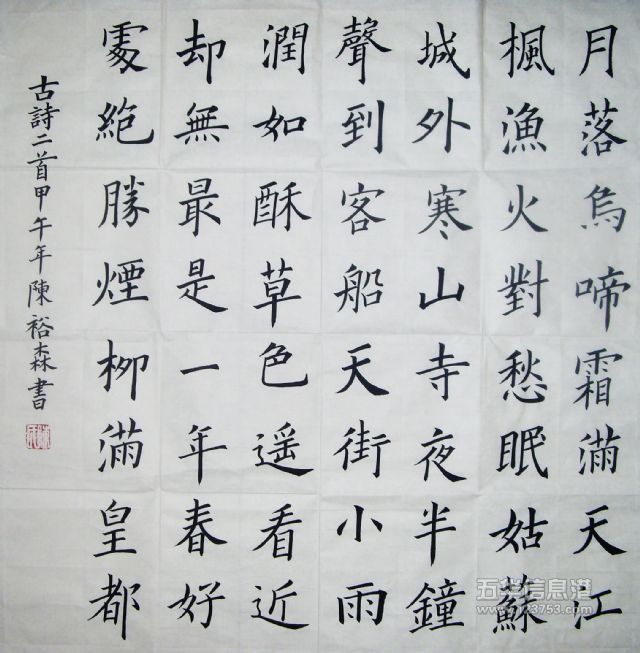 月落烏啼霜滿天江
楓漁火對愁眠姑蘇
城外寒山寺夜半鐘
聲到客船天街小雨
潤如酥草色遥看近
却無最是一年春好
處絶勝煙柳滿皇都
古詩二首甲午年陳裕森書
五华信息港
www.123753.com